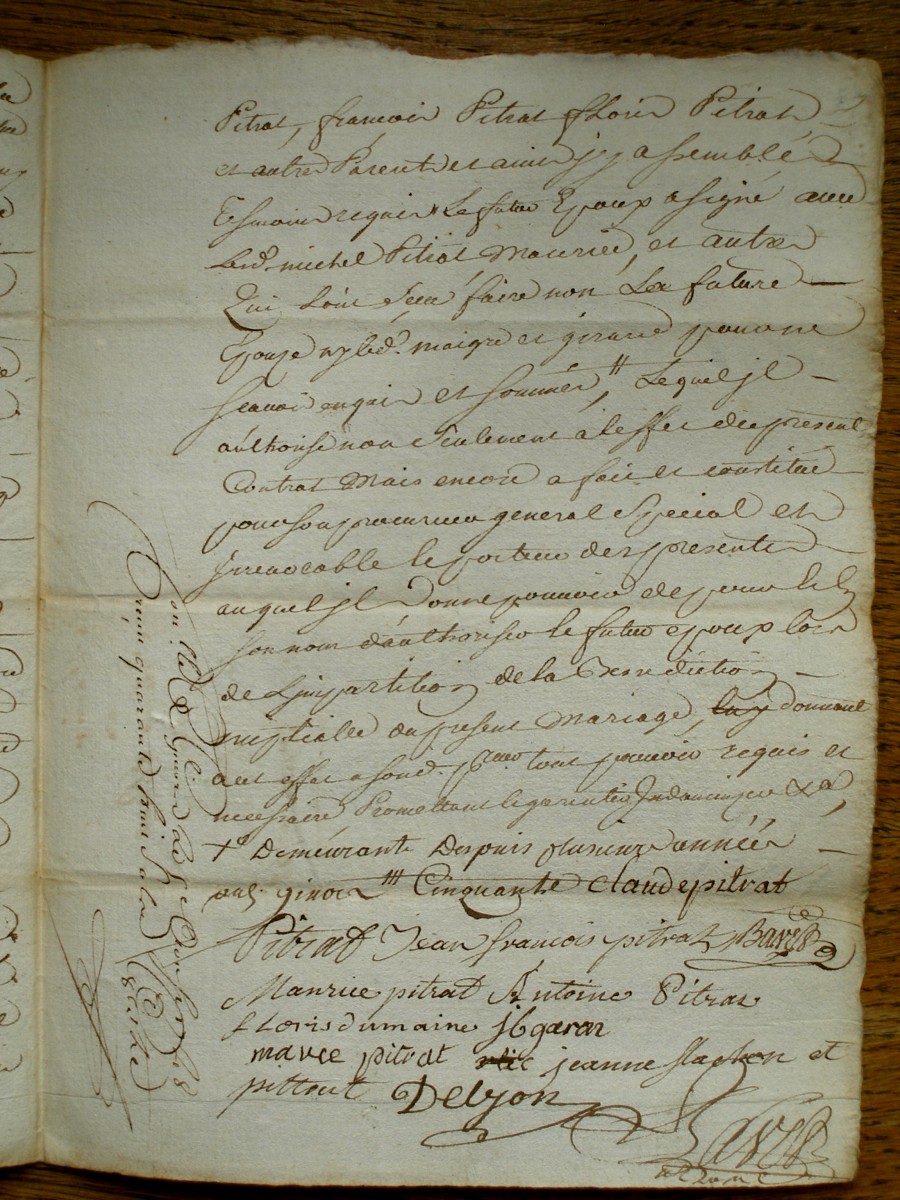 Pitrat, francois Pitrat floris Pitrat
et autres Parents et amis jy assemblés
Tesmoins requis " Le futur Epoux a signé avec
led. michel Pitrat Maurice, et autres
Qui sont sceu faire non La future
Epouse ny led. maigre et girard pour ne
scavoir enquis et sommés " Lequel jl
authorise non seulement à leffet du present
Contrat Mais encore a fait et constitué
pour son procureur general Special et
jrrevocable le porteur des presentes
auquel jl Donne pouvoir de pour lu
son nom d'authoriser le futur epoux lors
de Limpartition de la Benediction
nuptialle du present Mariage, donnant
a cet effet a sond. pour tout pouvoir requis et
necessaire Promettant le garentir Indamniser &a
+ Demeurante Despuis plusieurs années
Cinquante claude pitrat
Pitrat Jean francois pitrat
Maurice pitrat Antoine Pitrat
floris dumaine jb garar
mavce pitrat jeanne flachon et
pittrat Delyon
quarante huit